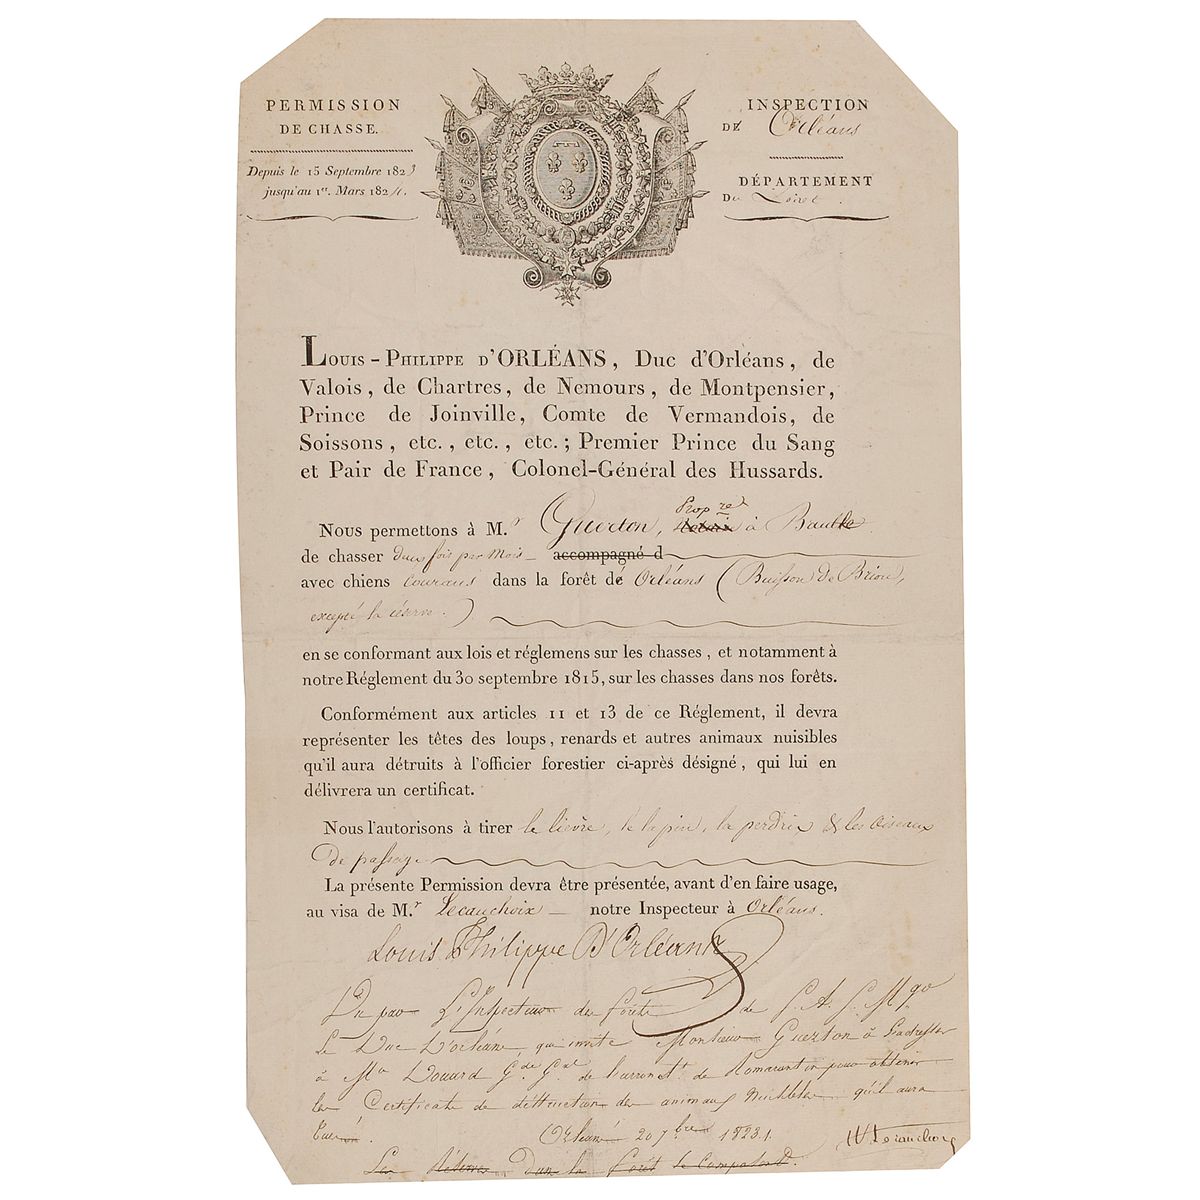 PERMISSION
DE CHASSE.
Depuis le 15 Septembre 1823
jusqu'au 1er. Mars 1824.
INSPECTION
DE Orléans
DÉPARTEMENT
Du Loiret
Louis-Philippe d'ORLÉANS, Duc d'Orléans, de
Valois, de Chartres, de Nemours, de Montpensier,
Prince de Joinville, Comte de Vermandois, de
Soissons, etc., etc., etc.; Premier Prince du Sang
et Pair de France, Colonel-Général des Hussards.
Propre
Nous permettons à M.r Guerton, à Baulle
de chasser deux fois par mois accompagné d
avec chiens courans dans la forêt d'Orléans (Buisson de Briou,
excepté la réserve.)
en se conformant aux lois et réglemens sur les chasses, et notamment à
notre Réglement du 30 septembre 1815, sur les chasses dans nos forêts.
Conformément aux articles 11 et 13 de ce Réglement, il devra
représenter les têtes des loups, renards et autres animaux nuisibles
qu'il aura détruits à l'officier forestier ci-après désigné, qui lui en
délivrera un certificat.
Nous l'autorisons à tirer le lièvre, le lapin, la perdrix & les oiseaux
de passage
La présente Permission devra être présentée, avant d'en faire usage,
au visa de M.r Lecauchoix notre Inspecteur à Orléans.
Louis Philippe D'Orléans
Vu par L'Inspecteur des forêts de S. A. S. Mgr
Le Duc D'orléans qui invite Monsieur Guerton à s'adresser
à Mr Douard Gde Gal de l'arront de Romorantin pour obtenir
les Certificats de destruction des animaux nuisibles qu'il aura
tués.
Orléans 20 7bre 1823.
Les Réserves Dans la Forêt